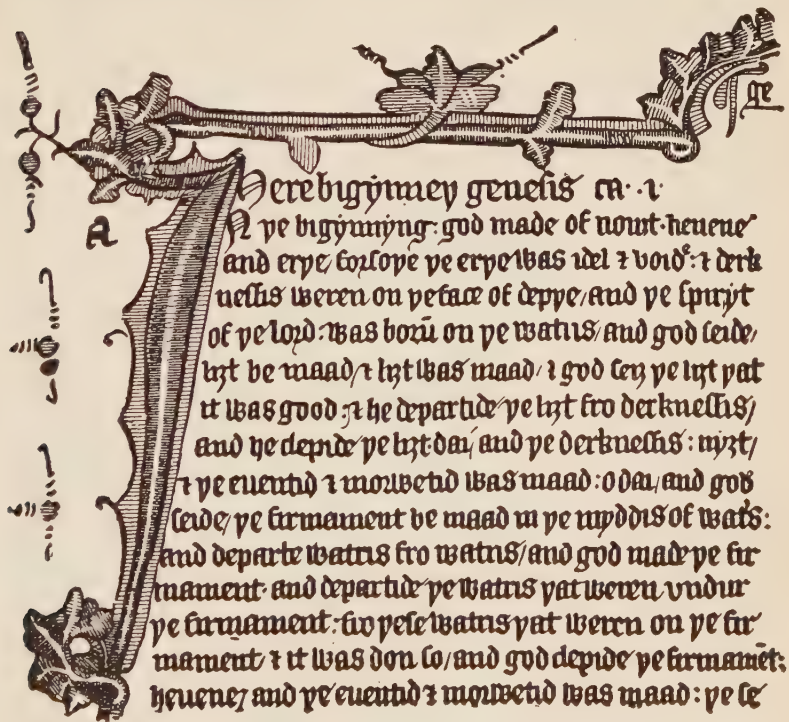 ge
Here bigynney genesis ca. i.
A
N ye bigynnyng: god made of nouȝt heuene
and erye, forsoye ye erye was idel ⁊ voide: ⁊ derk
nessis weren on ye face of deppe, and ye spiryt
of ye lord: was borū on ye watris, and god seide,
liȝt be maad, ⁊ liȝt was maad, ⁊ god seiȝ ye liȝt yat
it was good: ⁊ he departide ye liȝt fro derknessis,
and he clepide ye liȝt dai, and ye derknessis: nyȝt,
⁊ ye euentid ⁊ morwetid was maad: o dai, and god
seide, ye firmament be maad in ye myddis of wat's:
and departe watris fro watris, and god made ye fir
mament and departide ye watris yat weren vndur
ye firmament: fro yese watris yat weren on ye fir
mament, ⁊ it was don so, and god clepide ye firmamēt:
heuene, and ye euentid ⁊ morwetid was maad: ye se